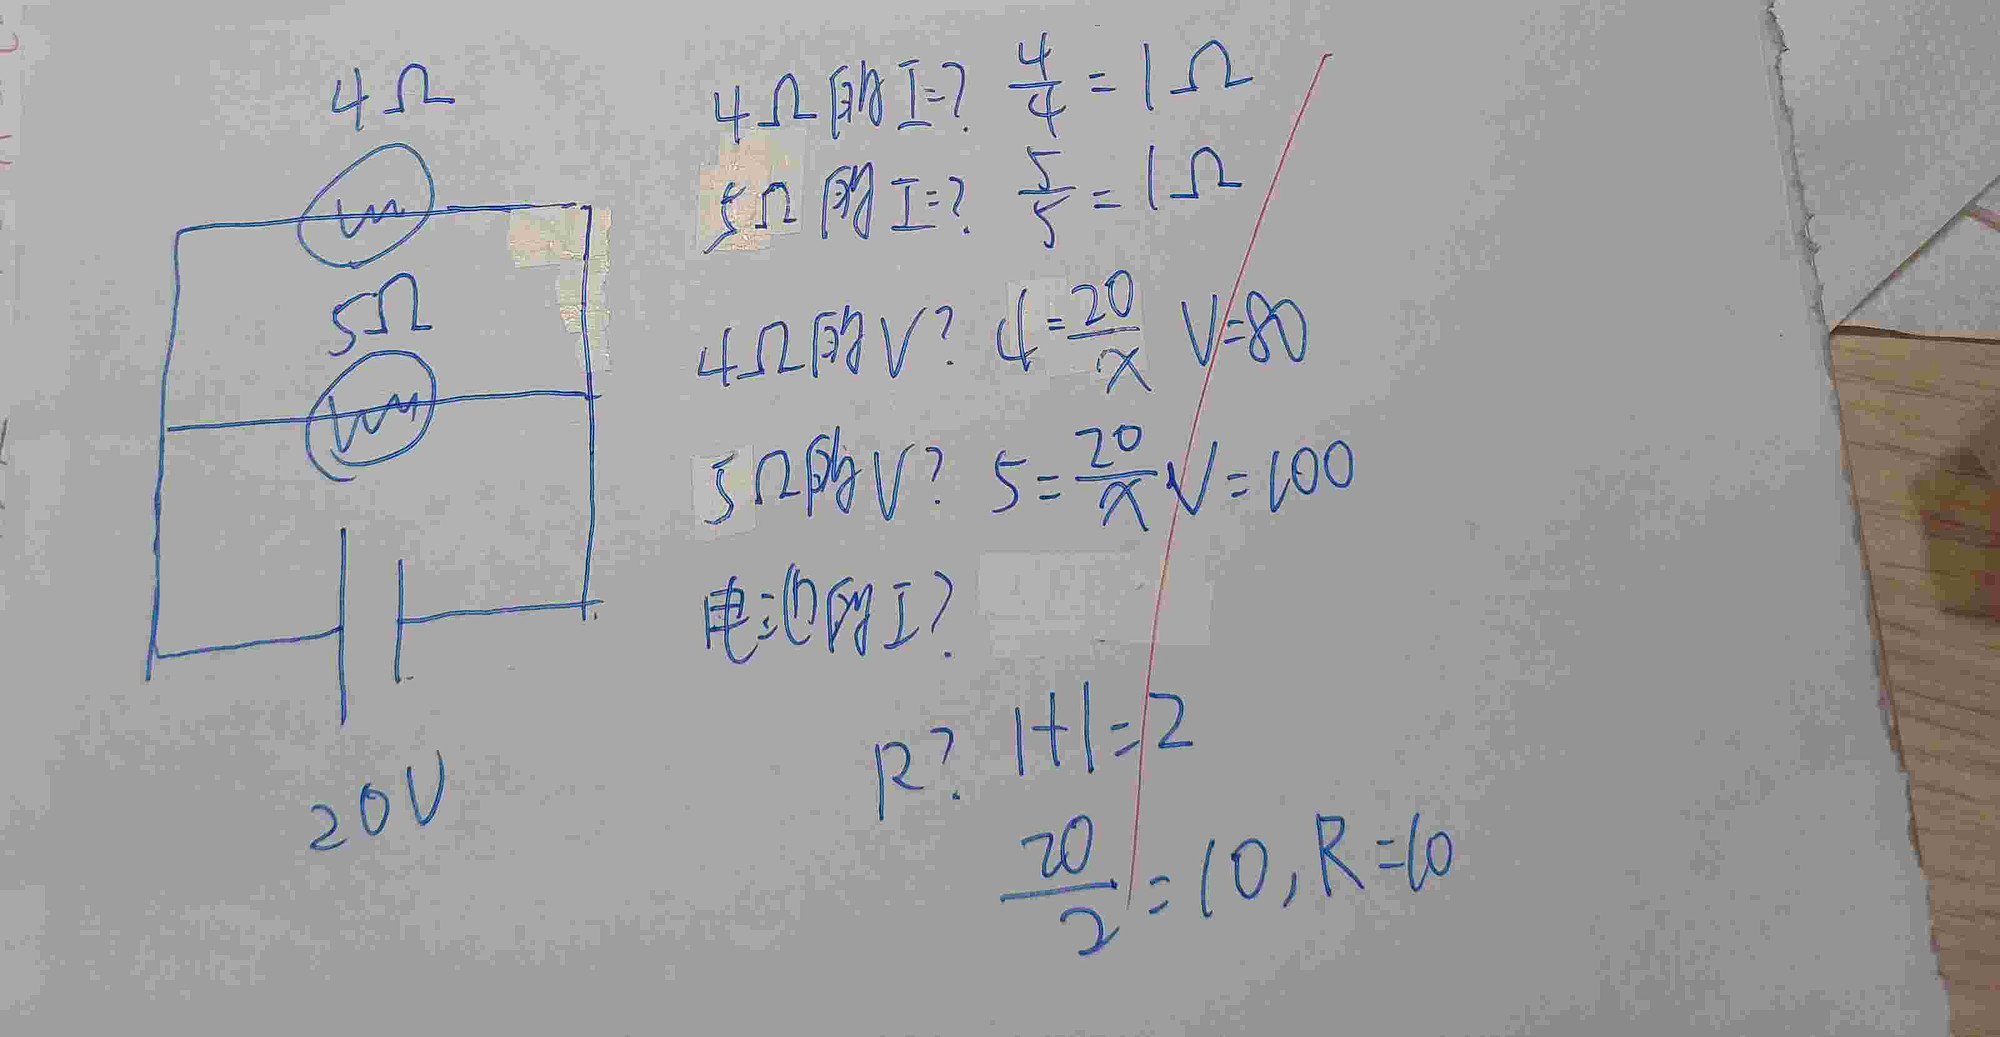 4Ω
5Ω
20V
4Ω的I=? 4/4=1Ω
5Ω的I=? 5/5=1Ω
4Ω的V? 4=20/x V=80
5Ω的V? 5=20/x V=100
电池的I?
R? 1+1=2
20/2=10, R=10